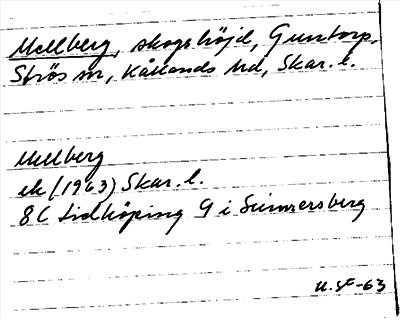 Mellberg, skogshöjd, Guntorp,
Strös sn, Kållands hd, Skar. l.
Mellberg
ek (1963) Skar. l.
8C Lidköping 9 i Sunnersberg
-63